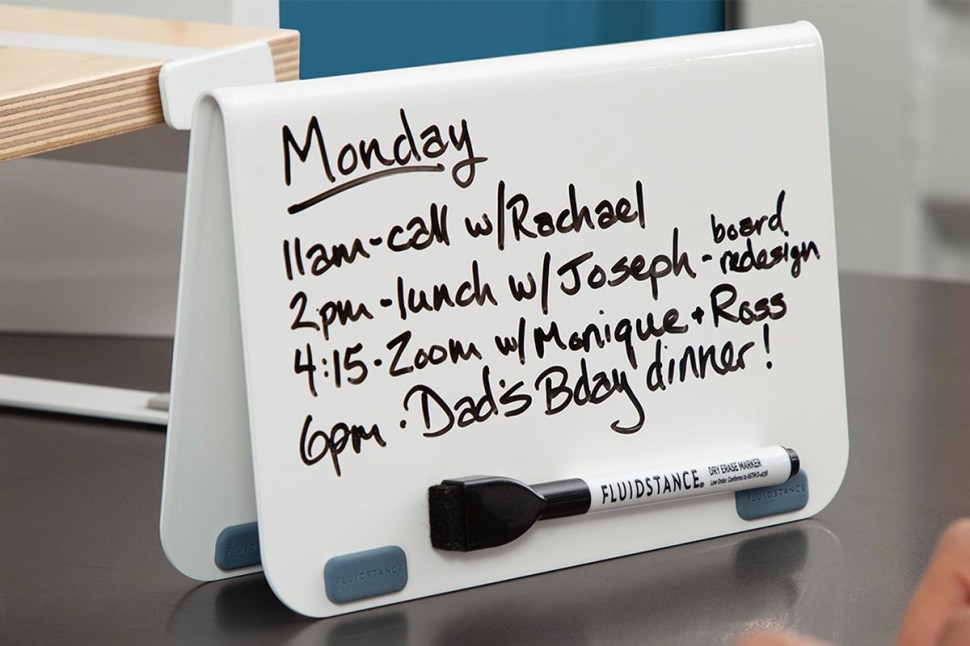 Monday
11am-call w/Rachael
2pm-lunch w/Joseph - board redesign
4:15·Zoom w/Monique + Ross
6pm·Dad's Bday dinner!
FLUIDSTANCE
DRY ERASE MARKER
Low Odor. Conforms to ASTM D-4236
FLUIDSTANCE
FLUIDSTANCE